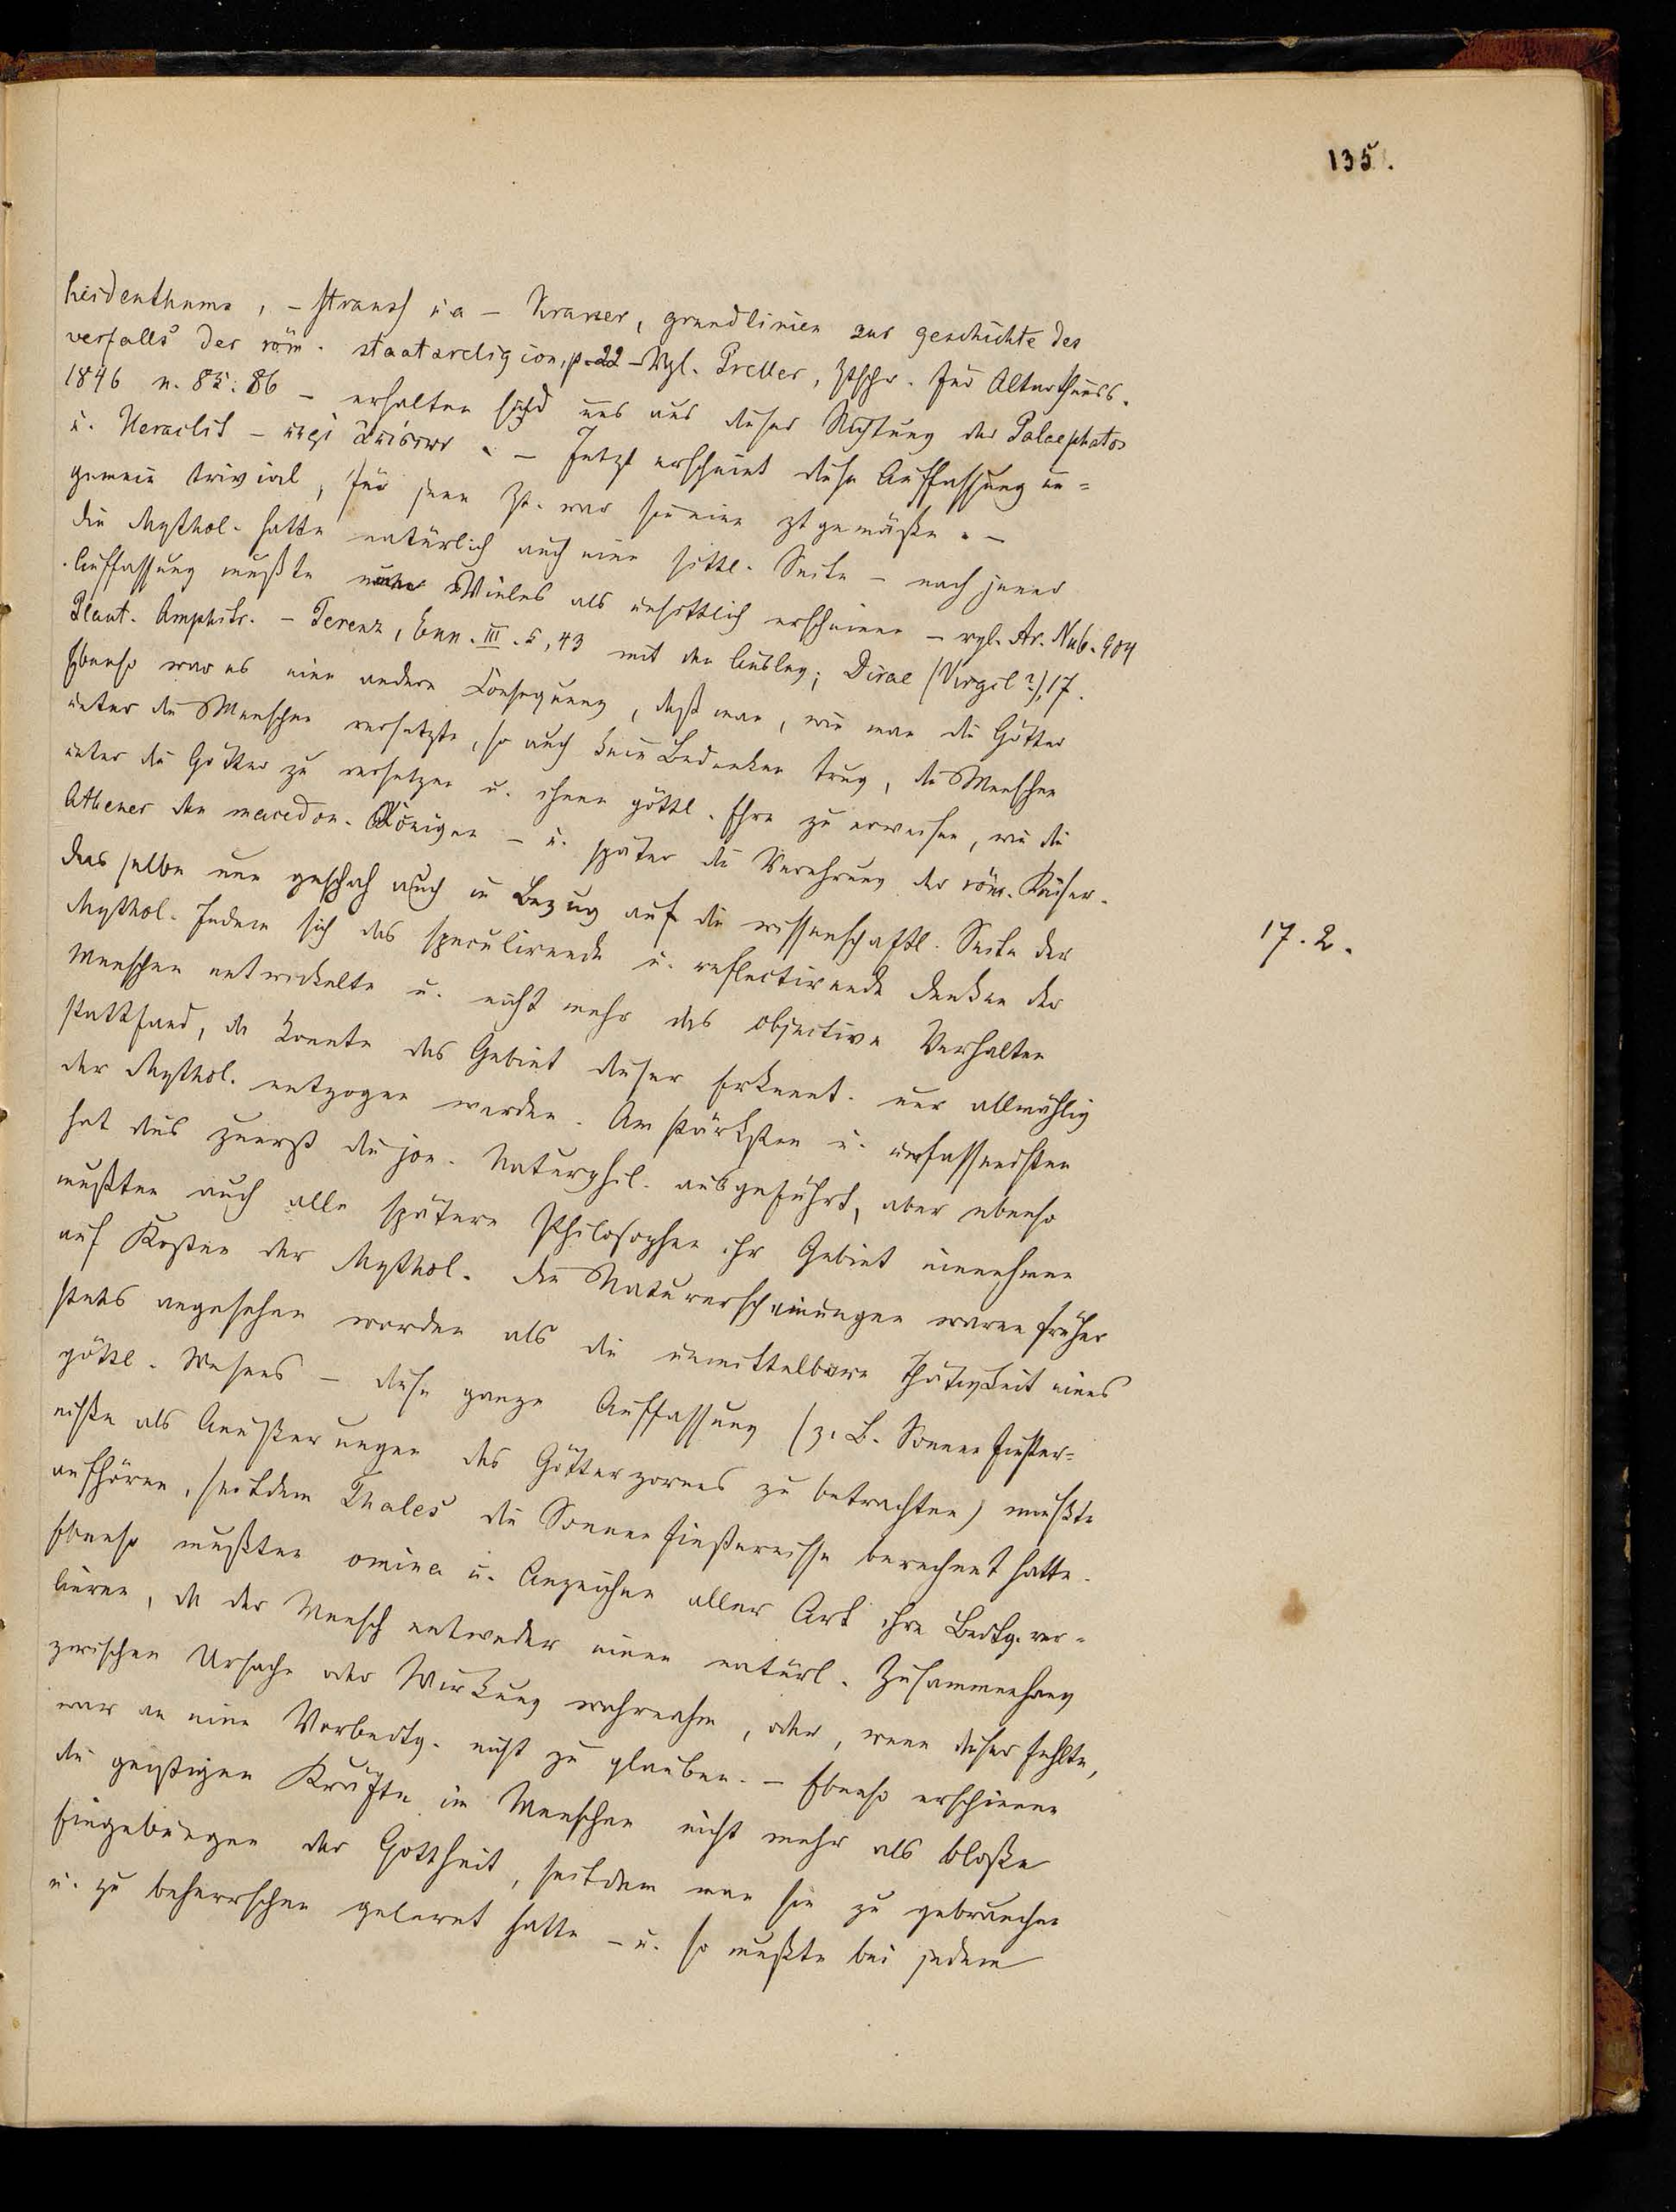 135.
heidenthums, – Strauß u a – Kraner, grundlinien zur geschichte des
verfalls der röm. staatsreligion, p. 22 – Vgl. Preller, Ztschr. für Alterthumss.
1846 n. 85. 86 – erhalten sind uns aus dieser Richtung der Palaephatos
u. Heraclit – περὶ ἀπίστων. – Jetzt erscheint diese Auffassung un=
gemein trivial, für jene Zt. war sie eine ztgemäße. –
Die Mythol. hatte natürlich auch eine sittl. Seite – nach jener
Auffassung mußte Vieles als unsittlich erscheinen – vgl. Ar. Nub. 904
Plaut. Amphitr. – Terenz, Eun. III. 5, 43 mit den Ausleg; Dirae (Virgil?), 17.
Ebenso war es eine andere Consequenz, daß man, wie man die Götter
unter die Menschen versetzte, so auch kein Bedenken trug, die Menschen
unter die Götter zu versetzen u. ihnen göttl. Ehre zu erweisen, wie die
Athener den macedon. Königen – u. später die Verehrung der röm. Kaiser.
Das selbe nun geschah auch in Bezug auf die wissenschaftl. Seite der
Mythol. Indem sich das speculirende u. reflectirende Denken der
17. 2.
Menschen entwickelte u. nicht mehr das objective Verhalten
stattfand, da konnte das Gebiet dieser Erkennt. nur allmählig
der Mythol. entzogen werden. Am stärksten u. umfassendsten
hat dies zuerst die jon. Naturphil. ausgeführt, aber ebenso
mußten auch alle spätere Philosophen ihr Gebiet einnehmen
auf Kosten der Mythol. Die Naturerscheinungen waren früher
stets angesehen worden als die unmittelbare Thätigkeit eines
göttl. Wesens – diese ganze Auffassung (z. B. Sonnenfinster=
nisse als Aeußerungen des Götterzornes zu betrachten) mußte
aufhören, seitdem Thales die Sonnenfinsternisse berechnet hatte.
Ebenso mußten omina u. Anzeichen aller Art ihre Bedtg. ver=
lieren, da der Mensch entweder einen natürl. Zusammenhang
zwischen Ursache oder Wirkung wahrnahm, oder, wenn dieser fehlte,
war an eine Vorbedtg. nicht zu glauben. – Ebenso erschienen
die geistigen Kräfte im Menschen nicht mehr als bloße
Eingebungen der Gottheit, seitdem man sie zu gebrauchen
u. zu beherrschen gelernt hatte – u. so mußte bei jedem